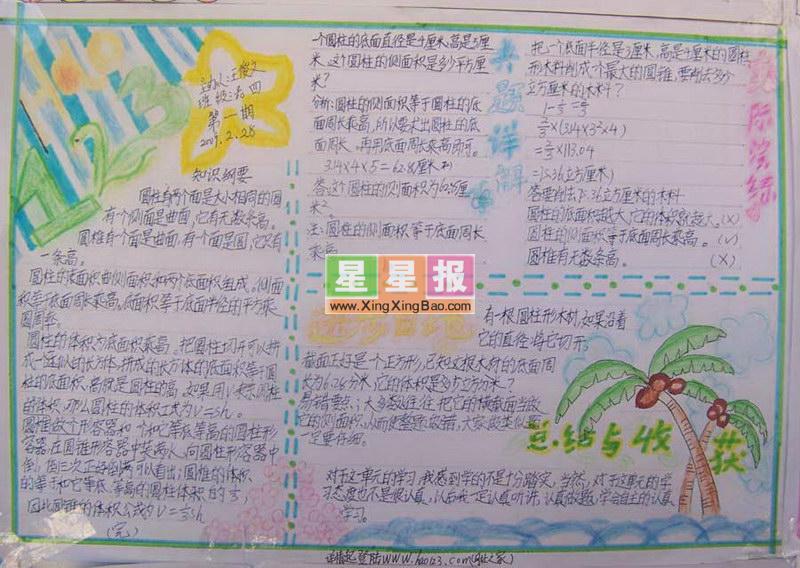 123
主办人:王俊文
班级:六四
第一期
2007.2.28
知识纲要
圆柱有两个面是大小相同的圆
有个侧面是曲面,它有无数条高。
圆椎有个面是曲面,有个面是圆,它只有
一条高。
圆柱的表面积由侧面积和两个底面积组成。侧面
积等于底面周长乘高,底面积等于底面半径的平方乘
圆周率。
圆柱的体积为底面积乘高。把圆柱切开可以拼
成一近似的长方体,拼成的长方体的底面积等于圆
柱的底面积,高就是圆柱的高。如果用V表示圆柱
的体积,那么圆柱的体积公式为V=sh。
圆椎做个形容器和
容器,在圆锥形容器中装满水,向圆柱形容器中
倒,倒三次正好倒满
的等于和它等底、等高的圆柱体积的1/3,
因此圆锥的体积公式为V=1/3sh
(完)
一个圆柱的底面直径是4厘米,高是5厘
米,这个圆柱的侧面积是多少平方厘
米?
分析:圆柱的侧面积等于圆柱的底
面周长乘高,所以要求出圆柱的底
面周长,再用底面周长乘高即可。
3.14×4×5=62.8(厘米2)
答:这个圆柱的侧面积为62.8厘
米2。
注:圆柱的侧面积等于底面周长
乘高
题详解
把一个底面半径是3厘米,高是4厘米的圆柱
形木料削成个最大的圆锥,要削去多少
立方厘米的木料?
1-1/3=2/3
2/3×(3.14×3²×4)
=2/3×113.04
=75.36(立方厘米)
答:要削去75.36立方厘米的木料
圆柱的底面积越大,它的体积就越大。(×)
圆柱的侧面积等于底面周长乘高。(√)
圆椎有无数条高。(×)
实际演练
星星报
www.XingXingBao.com
有一根圆柱形木材,如果沿着
它的直径将它切开,
截面正好是一个正方形,已知这根木材的底面周
长为6.28分米,它的体积是多少立方分米?
易错要点:大多数往往把它的横截面当做
它的侧面积,从而使整题做错,大家做类似题
一定要仔细。
总结与收获
对于这一单元的学习,我感到学的不是十分踏实,当然,对于这单元的学
习态度也不是很认真,以后我一定认真听讲,认真做题,学会自主的认真
学习。
www.hao123.com(网址之家)